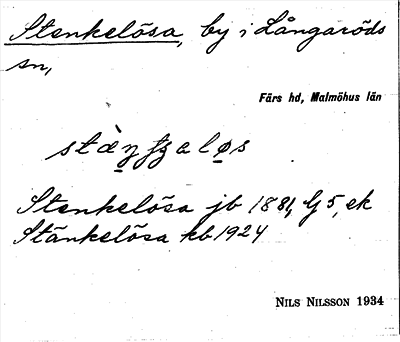 Stenkelösa, by i Långaröds
sn,
Färs hd, Malmöhus län
Stenkelösa jb 1881, G 5, ek
Stänkelösa kb 1924
NILS NILSSON 1934